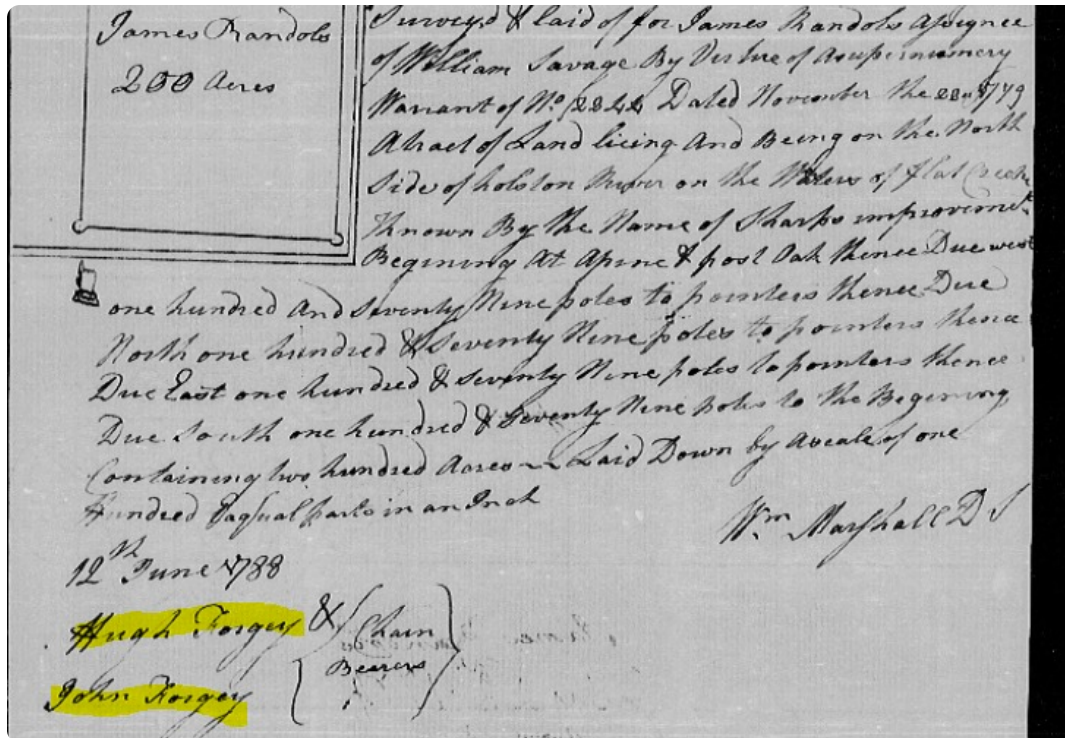 James Randols
200 Acres
Surveyd & laid of for James Randols Assignee
of William Savage By Vertue of a supernumery
Warrant of No. 2844 Dated November the 1779
A tract of Land lieing And Being on the North
Side of holston River on the Waters of flat Creek
Known By the Name of Sharps improvement
Begining At Apine & post Oak thence Due west
one hundred And Seventy Nine poles to pointers thence Due
North one hundred & Seventy Nine poles to pointers thence
Due East one hundred & Seventy Nine poles to pointers thence
Due South one hundred & Seventy Nine poles to the Begining
Containing two hundred Acres Laid Down by Ascale of one
Hundred Eaqual parts in an Inch
Wm Marshall D S
12th June 1788
Hugh Forgey & Chain
Bearers
John Forgey